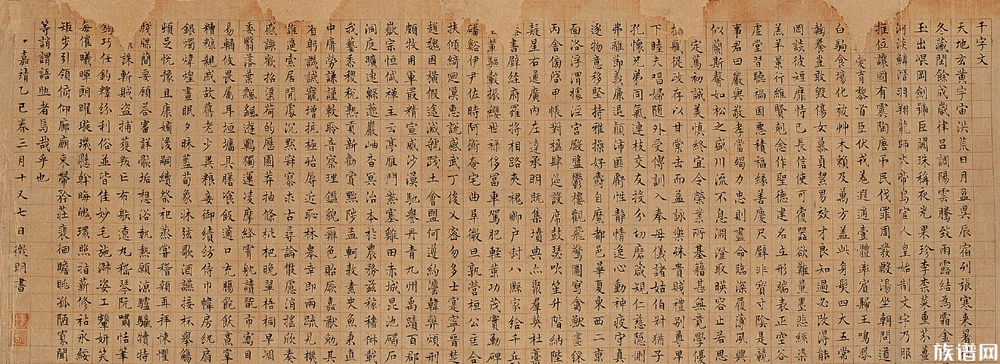 千字文
天地玄黃宇宙洪荒日月盈昃辰宿列張寒來暑
冬藏閏餘成歲律呂調陽雲騰致雨露結為霜
玉出崑岡劍號巨闕珠稱夜光果珍李柰菜重芥
河淡鱗潛羽翔龍師火帝鳥官人皇始制文字乃服
推位讓國有虞陶唐弔民伐罪周發殷湯坐朝問道
愛育黎首臣伏戎羌遐邇壹體率賓歸王鳴鳳
白駒食場化被艸木賴及萬方蓋此身髮四大五常
鞠養豈敢毀傷女慕貞絜男效才良知過必改得能
罔談彼短靡恃己長信使可覆器欲難量墨悲絲
羔羊景行維賢克念作聖德建名立形端表正空谷
虛堂習聽禍因惡積福緣善慶尺璧非寶寸陰是競
事君曰嚴與敬孝當竭力忠則盡命臨深履薄夙興
似蘭斯馨如松之盛川流不息淵澄取暎容止若思
定篤初誠美慎終宜令榮業所基籍甚無竟學優
攝職從政存以甘棠去而益詠樂殊貴賤禮別尊卑
下睦夫唱婦隨外受傅訓入奉母儀諸姑伯叔猶子
孔懷兄弟同氣連枝交友投分切磨箴規仁慈隱
弗離節義廉退顛沛匪虧性靜情逸心動神疲守真
逐物意移堅持雅操好爵自縻都邑華夏東西二京
面洛浮渭據涇宮殿盤鬱樓觀飛驚圖寫禽獸畫綵
丙舍傍啟甲帳對楹肆筵設席鼓瑟吹笙升階納陛
疑星右通廣內左達承明既集墳典亦聚群英杜稾
書壁經府羅將相路夾槐卿戶封八縣家給千兵
輦驅轂振纓世祿侈富車駕肥輕策功茂實
磻谿伊尹佐時阿衡奄宅曲阜微旦孰營桓公匡合
扶傾綺迴漢惠說感武丁俊乂密勿多士寔寧晉楚
趙魏困橫假途滅虢踐土會盟何遵約法韓弊煩刑
頗牧用軍最精宣威沙漠馳譽丹青九州禹跡百郡
嶽宗恒岱禪主云亭雁門紫塞雞田赤城昆池碣石
洞庭曠遠緜邈巖岫杳冥治本於農務茲稼穡俶載
我藝黍稷稅熟貢新勸賞黜陟孟軻敦素史魚秉直
中庸勞謙謹敕聆音察理鑑貌辨色貽厥嘉猷勉其
省躬譏誡寵增抗極殆辱近恥林皋幸即兩疏見機
誰逼索居閒處沉默寂寥求古尋論散慮逍遙欣奏
感謝歡招渠荷的歷園莽抽條枇杷晚翠梧桐早凋
委翳落葉飄颻遊鵾獨運凌摩絳霄耽讀翫市寓目
易輶攸畏屬耳垣墻具膳餐飯適口充腸飽飫烹宰
糟糠親戚故舊老少異糧妾御績紡侍巾帷房紈扇
銀燭煒煌晝眠夕寐藍筍象牀弦歌酒讌接杯舉觴
頓足悅豫且康嫡後嗣續祭祀蒸嘗稽顙再拜悚懼
牋牒簡要顧答審詳骸垢想浴執熱願涼驢騾犢特
誅斬賊盜捕獲叛亡布射遼丸嵇琴阮嘯恬筆
鈞巧任釣釋紛利俗並皆佳妙毛施淑姿工顰妍笑
每催曦暉朗曜璇璣懸斡晦魄環照指薪修祜永綏
矩步引領俯仰廊廟束帶矜莊裵徊瞻眺孤陋寡聞
等誚謂語助者焉哉乎也
嘉靖乙巳春三月十又七日徵明書
族谱网